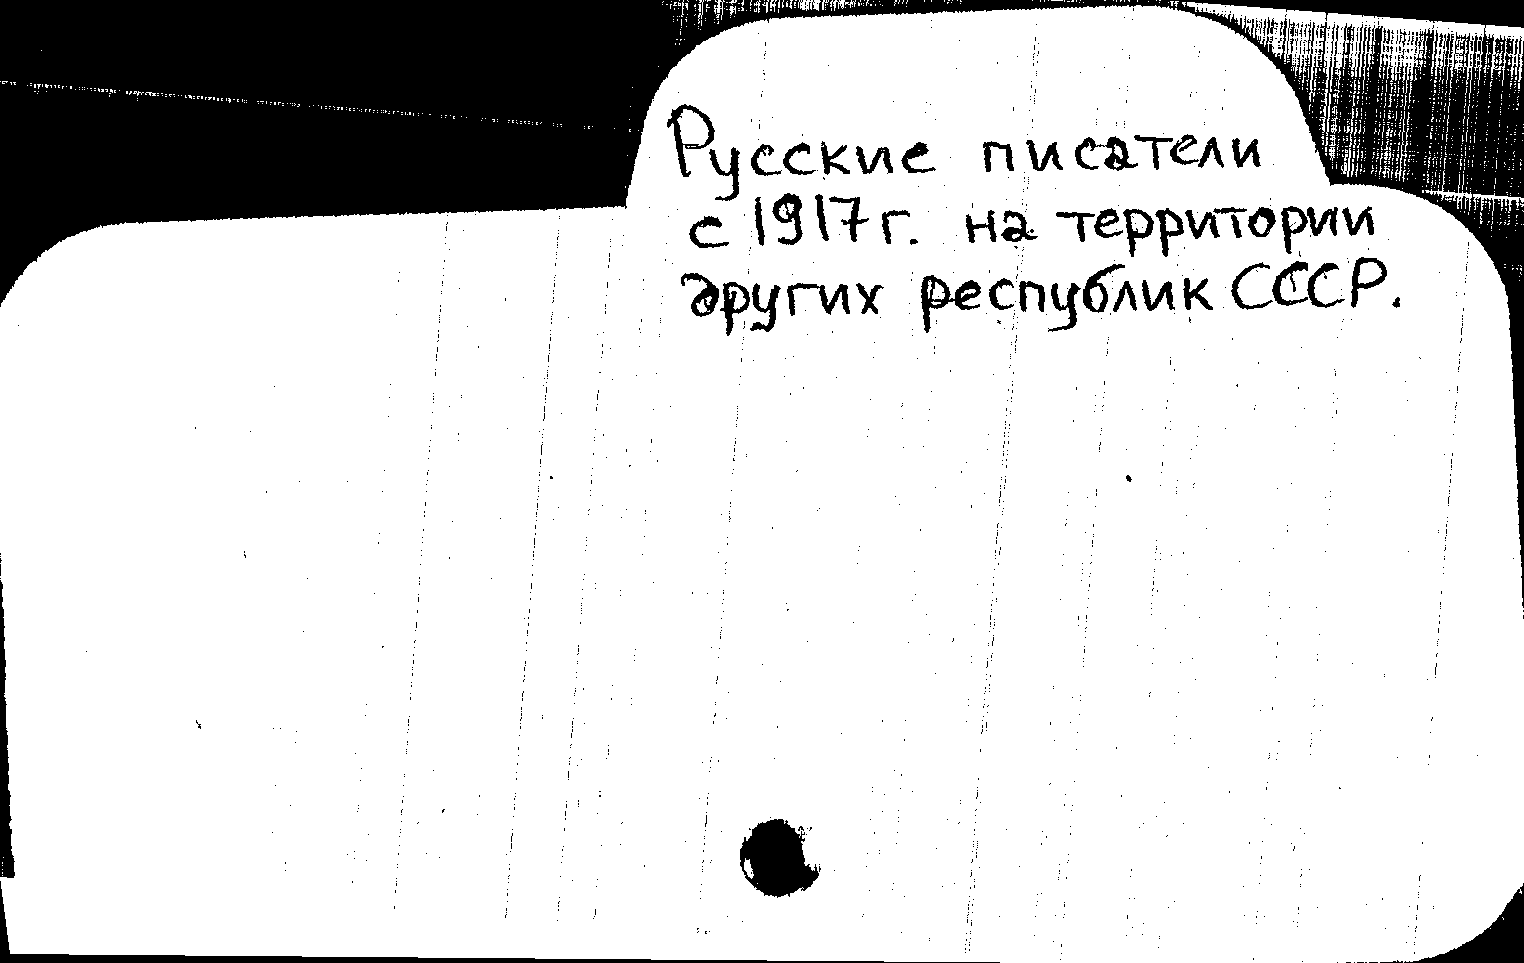 Русские писатели
с 1917 г. на территории
других республик СССР.